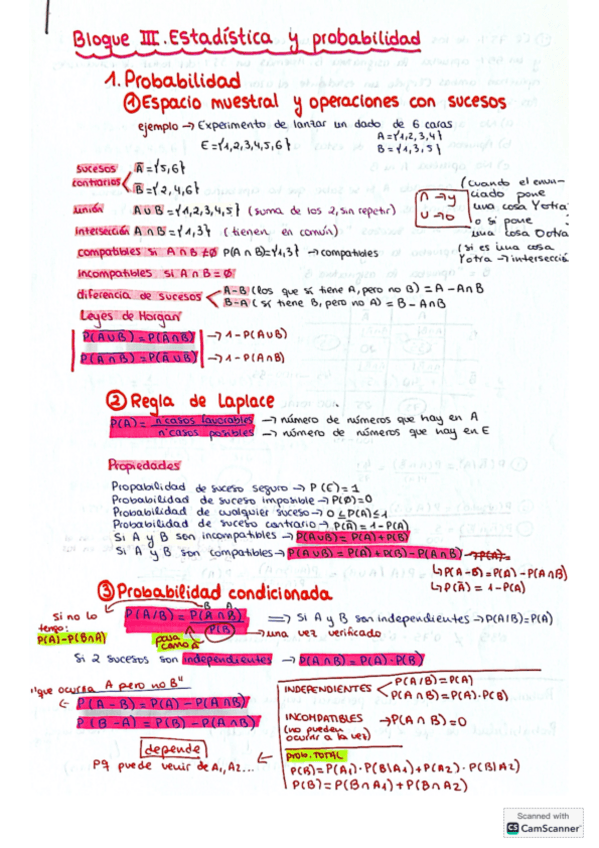 Bloque III. Estadística y probabilidad
1. Probabilidad
① Espacio muestral y operaciones con sucesos
ejemplo → Experimento de lanzar un dado de 6 caras
E={1,2,3,4,5,6}
A={1,2,3,4}
B={1,3,5}
sucesos contrarios
A̅={5,6}
B̅={2,4,6}
unión A∪B={1,2,3,4,5} (suma de los 2, sin repetir)
Intersección A∩B={1,3} (tienen en común)
∩→y
∪→o
(cuando el enun-
ciado pone
una cosa Y otra
o si pone
una cosa O otra
(si es una cosa
Y otra → intersecció
compatibles si A∩B≠∅ P(A∩B)={1,3} → compatibles
incompatibles si A∩B=∅
diferencia de sucesos
A-B (los que sí tiene A, pero no B) = A-A∩B
B-A (sí tiene B, pero no A) = B-A∩B
Leyes de Morgan
P(A̅∪B̅)=P(A̅∩B̅) → 1-P(A∪B)
P(A̅∩B̅)=P(A̅∪B̅) → 1-P(A∩B)
② Regla de Laplace
P(A)= nº casos favorables → número de números que hay en A
nº casos posibles → número de números que hay en E
Propiedades
Propabilidad de suceso seguro → P(E)=1
Probabilidad de suceso imposible → P(∅)=0
Probabilidad de cualquier suceso → 0≤P(A)≤1
Probabilidad de suceso contrario → P(A̅)=1-P(A)
Si A y B son incompatibles → P(A∪B)=P(A)+P(B)
Si A y B son compatibles → P(A∪B)=P(A)+P(B)-P(A∩B)
↳ P(A-B)=P(A)-P(A∩B)
↳ P(A̅) = 1-P(A)
③ Probabilidad condicionada
Si no lo
tengo:
P(A)-P(B∩A)
B A
P(A/B)= P(A∩B)
P(B)
pasa
como A
⇒ Si A y B son independientes → P(A/B)=P(A)
→ una vez verificado
Si 2 sucesos son independientes → P(A∩B)=P(A)·P(B)
"que ocurra A pero no B"
← P(A-B)=P(A)-P(A∩B)
P(B-A)=P(B)-P(A∩B)
depende
Pq puede venir de A₁, A₂...
INDEPENDIENTES
P(A/B)=P(A)
P(A∩B)=P(A)·P(B)
INCOMPATIBLES → P(A∩B)=0
(no pueden
ocurrir a la vez)
Prob. TOTAL
P(B)=P(A₁)·P(B\A1)+P(A2)·P(B\A2)
P(B)=P(B∩A1)+P(B∩A2)
Scanned with
CS CamScanner